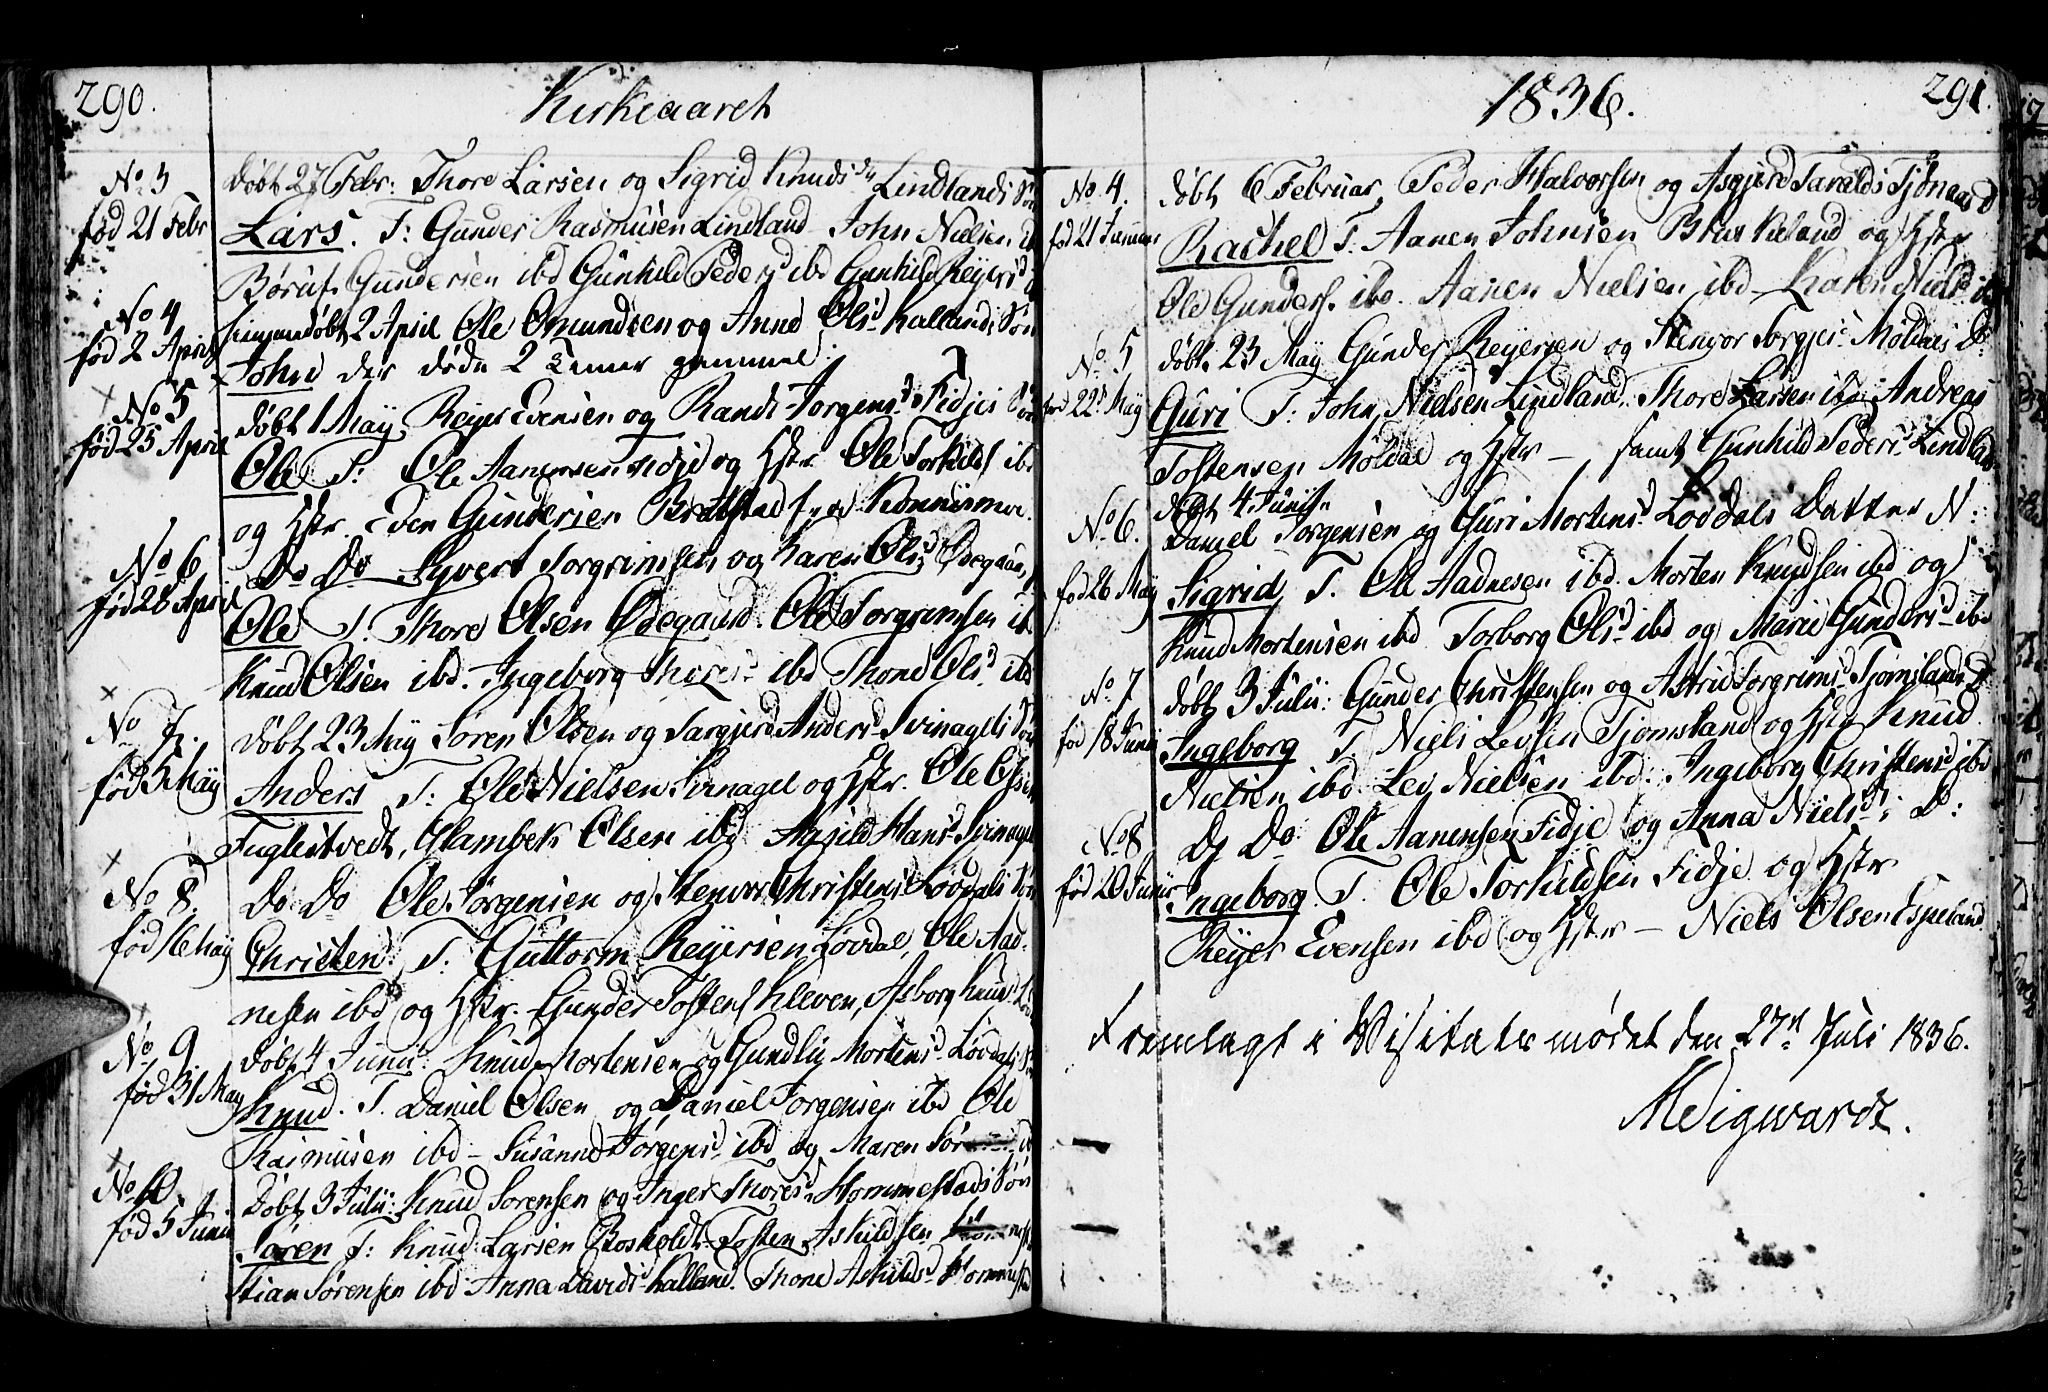 290.
Kirkeaaret
No 3
fød 21 Febr
døbt 27 Febr: Thore Larsen og Sigrid Knudsd Lindlands Søn
Lars. T: Gunder Rasmusen Lindland John Nielsen ibd
Gundersen ibd Gunhild Pedersd ibd Gunhild Reyersd
No 4
fød 2 April
hjemmedøbt 2 April Ole Omundsen og Anne Olsd Kallands Søn
John der døde 2 Timer gammel.
No 5
fød 25 April
døbt 1 May Reyer Evensen og Randi Jørgensd Fidjes Søn
Ole T: Ole Aanensen Fidje og Hstr Ole Torkilds ibd
og Hstr. Even Gundersen Bratstad
No 6
fød 28 April
Do Do Syvert Torgrimsen og Karen Olsd Ødegaard
Ole T. Thore Olsen Ødegaard. Ole Torgrimsen ibd
Knud Olsen ibd. Ingeborg Thoresd ibd Thone Olsd ibd
No 7.
fød 5 May
døbt 23 May Søren Olsen og Targjerd Andersd Svinagels Søn
Anders T: Ole Nielsen Svinagel og Hstr. Ole Olsen
Fuglestvedt, Glambek Olsen ibd Hansd Svinagel
No 8.
fød 16 May
Do Do Ole Jørgensen og Stenvor Christensd Løvdals Søn
Christen. T. Guttorm Reyersen Løvdal, Ole Aad-
nesen ibd og Hstr. Gunder Tostens Kleven, Asborg Knuds
No 9
fød 31 May
døbt 4 Junii: Knud Mortensen og Gundlig Mortensd Løvdals
Knud. T. Daniel Olsen og Daniel Jorgensen ibd Ole
Rasmusen ibd – Susanne Jørgensd ibd og Maren
No 10
fød 5 Junii
Døbt 3 Julii: Knud Sorensen og Inger Thoresd Hommestads Søn
Søren T: Knud Larsen Tosten Askildsen
Stian Sørensen ibd Anna Davids Kalland. Thone Askildsd Homme
1836.
291.
No 4.
fød 21 Januar
døbt 6 Februar, Peder Halvorsen og Asgjerd Taralds
Rachel T. Aanen Johnsen og Hstr
Ole Gunders. ibd. Aanen Nielsen ibd – Karen Nielsd ibd
No 5
fød 22 May
døbt 23 May Gunder Reyersen og Stenvor Torgjersd Møldals D:
Guri T: John Nielsen Lindland, Thore Larsen ibd Andreas
Tostensen Møldal og Hstr – samt Gunhild Pedersd Lindland
No 6.
fød 26 May
døbt 4 Junii
Daniel Jorgensen og Guri Mortensd Løvdals Datter N:
Sigrid T. Ole Aadnesen ibd. Morten Knudsen ibd og
Knud Mortensen ibd Torborg Olsd ibd og Marie Gundersd ibd
No 7
fød 18 Junii
døbt 3 Julii: Gunder Christensen og Astrid Torgrimsd Tjomslands D
Ingeborg T Niels Levsen Tjomsland og Hstr Knud
Nielsen ibd Lev Nielsen ibd: Ingeborg Christensd ibd
No 8
fød 20 Junii
Do Do Ole Aanensen Fidje og Anna Nielsd: D:
Ingeborg T. Ole Torkildsen Fidje og Hstr
Reyer Evensen ibd og Hstr – Niels Olsen Espeland
Fremlagt i Visitatsmødet den 27de Juli 1836.